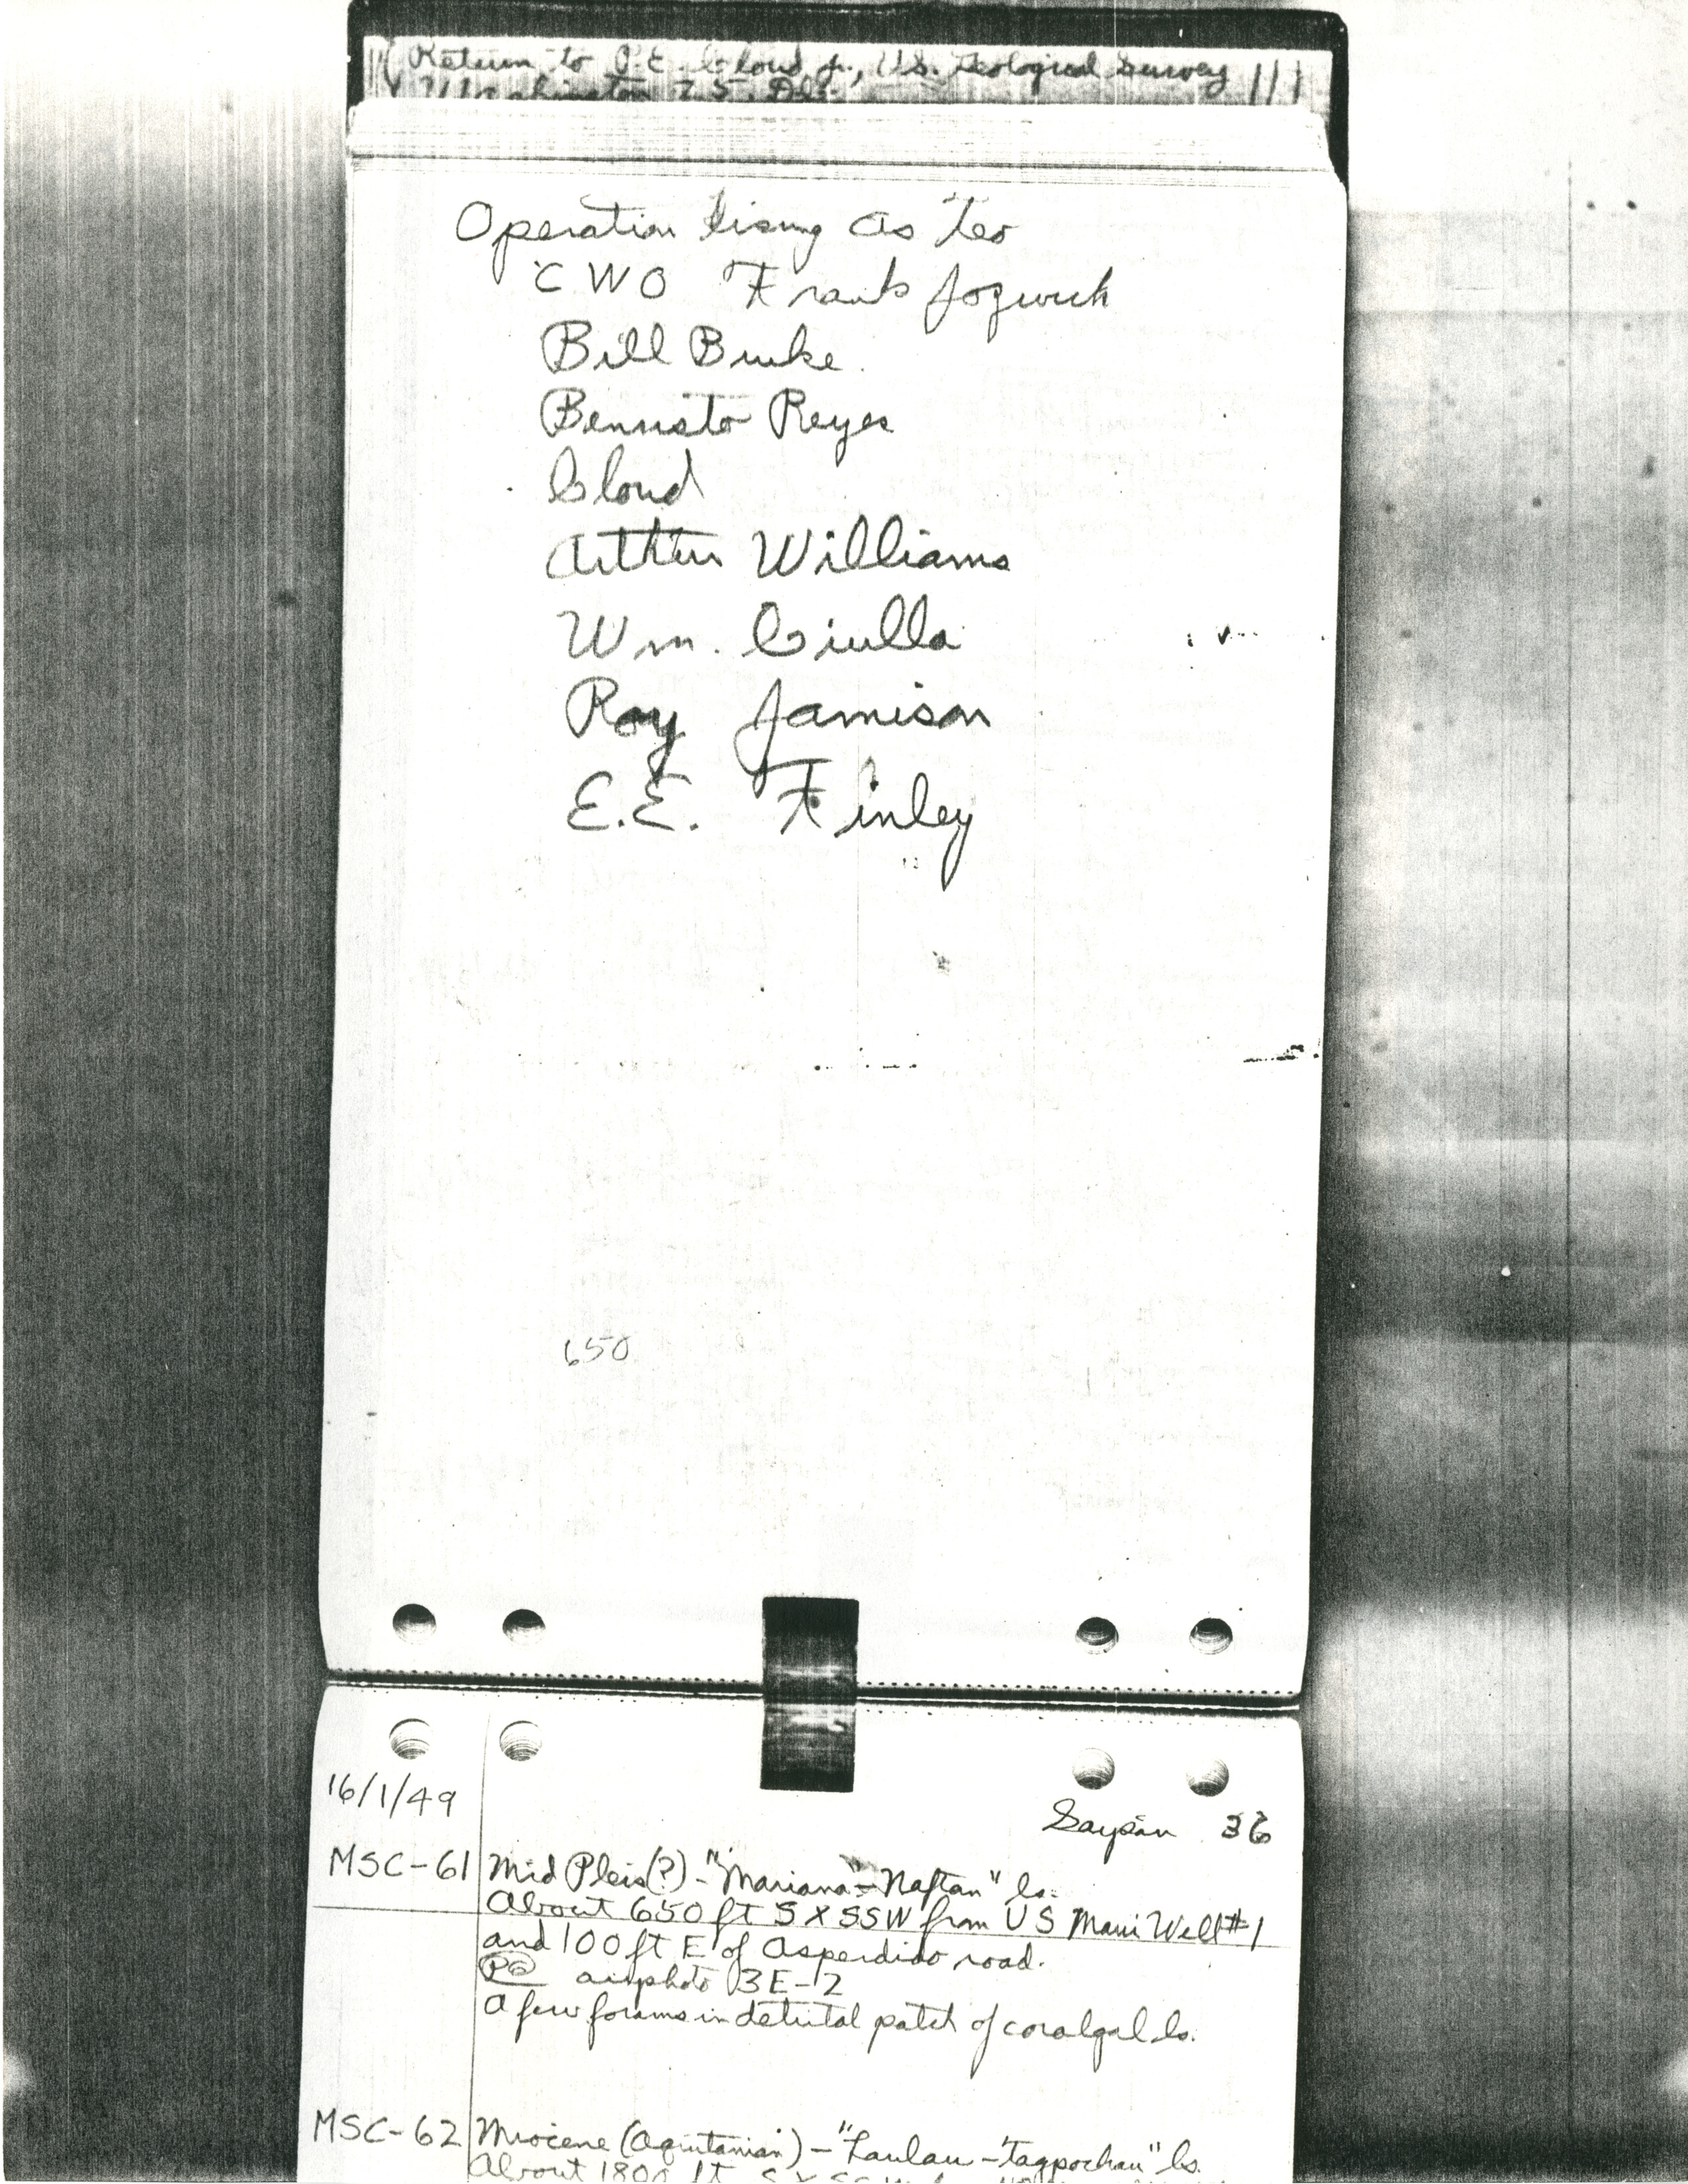 Return to P.E. Cloud Jr., U.S. Geological Survey
Washington 25, D.C.
Operation As Teo
CWO Frank
Bill Burke
Reyes
Cloud
Arthur Williams
Wm. Ciulla
Roy Jamison
E.E. Finley
650
16/1/49
Saypan 36
MSC-61 Mid Pleis(?) - "Mariana" - Naftan" ls.
About 650 ft S X SSW from US Maui Well #1
and 100 ft E of Asperdido road.
P6 airphoto 3E-2
A few forams in detrital patch of coralgal ls.
MSC-62 Miocene (Aquitanian) - "Laulau - Tagpochau" ls.
About 1800 ft S X SSW